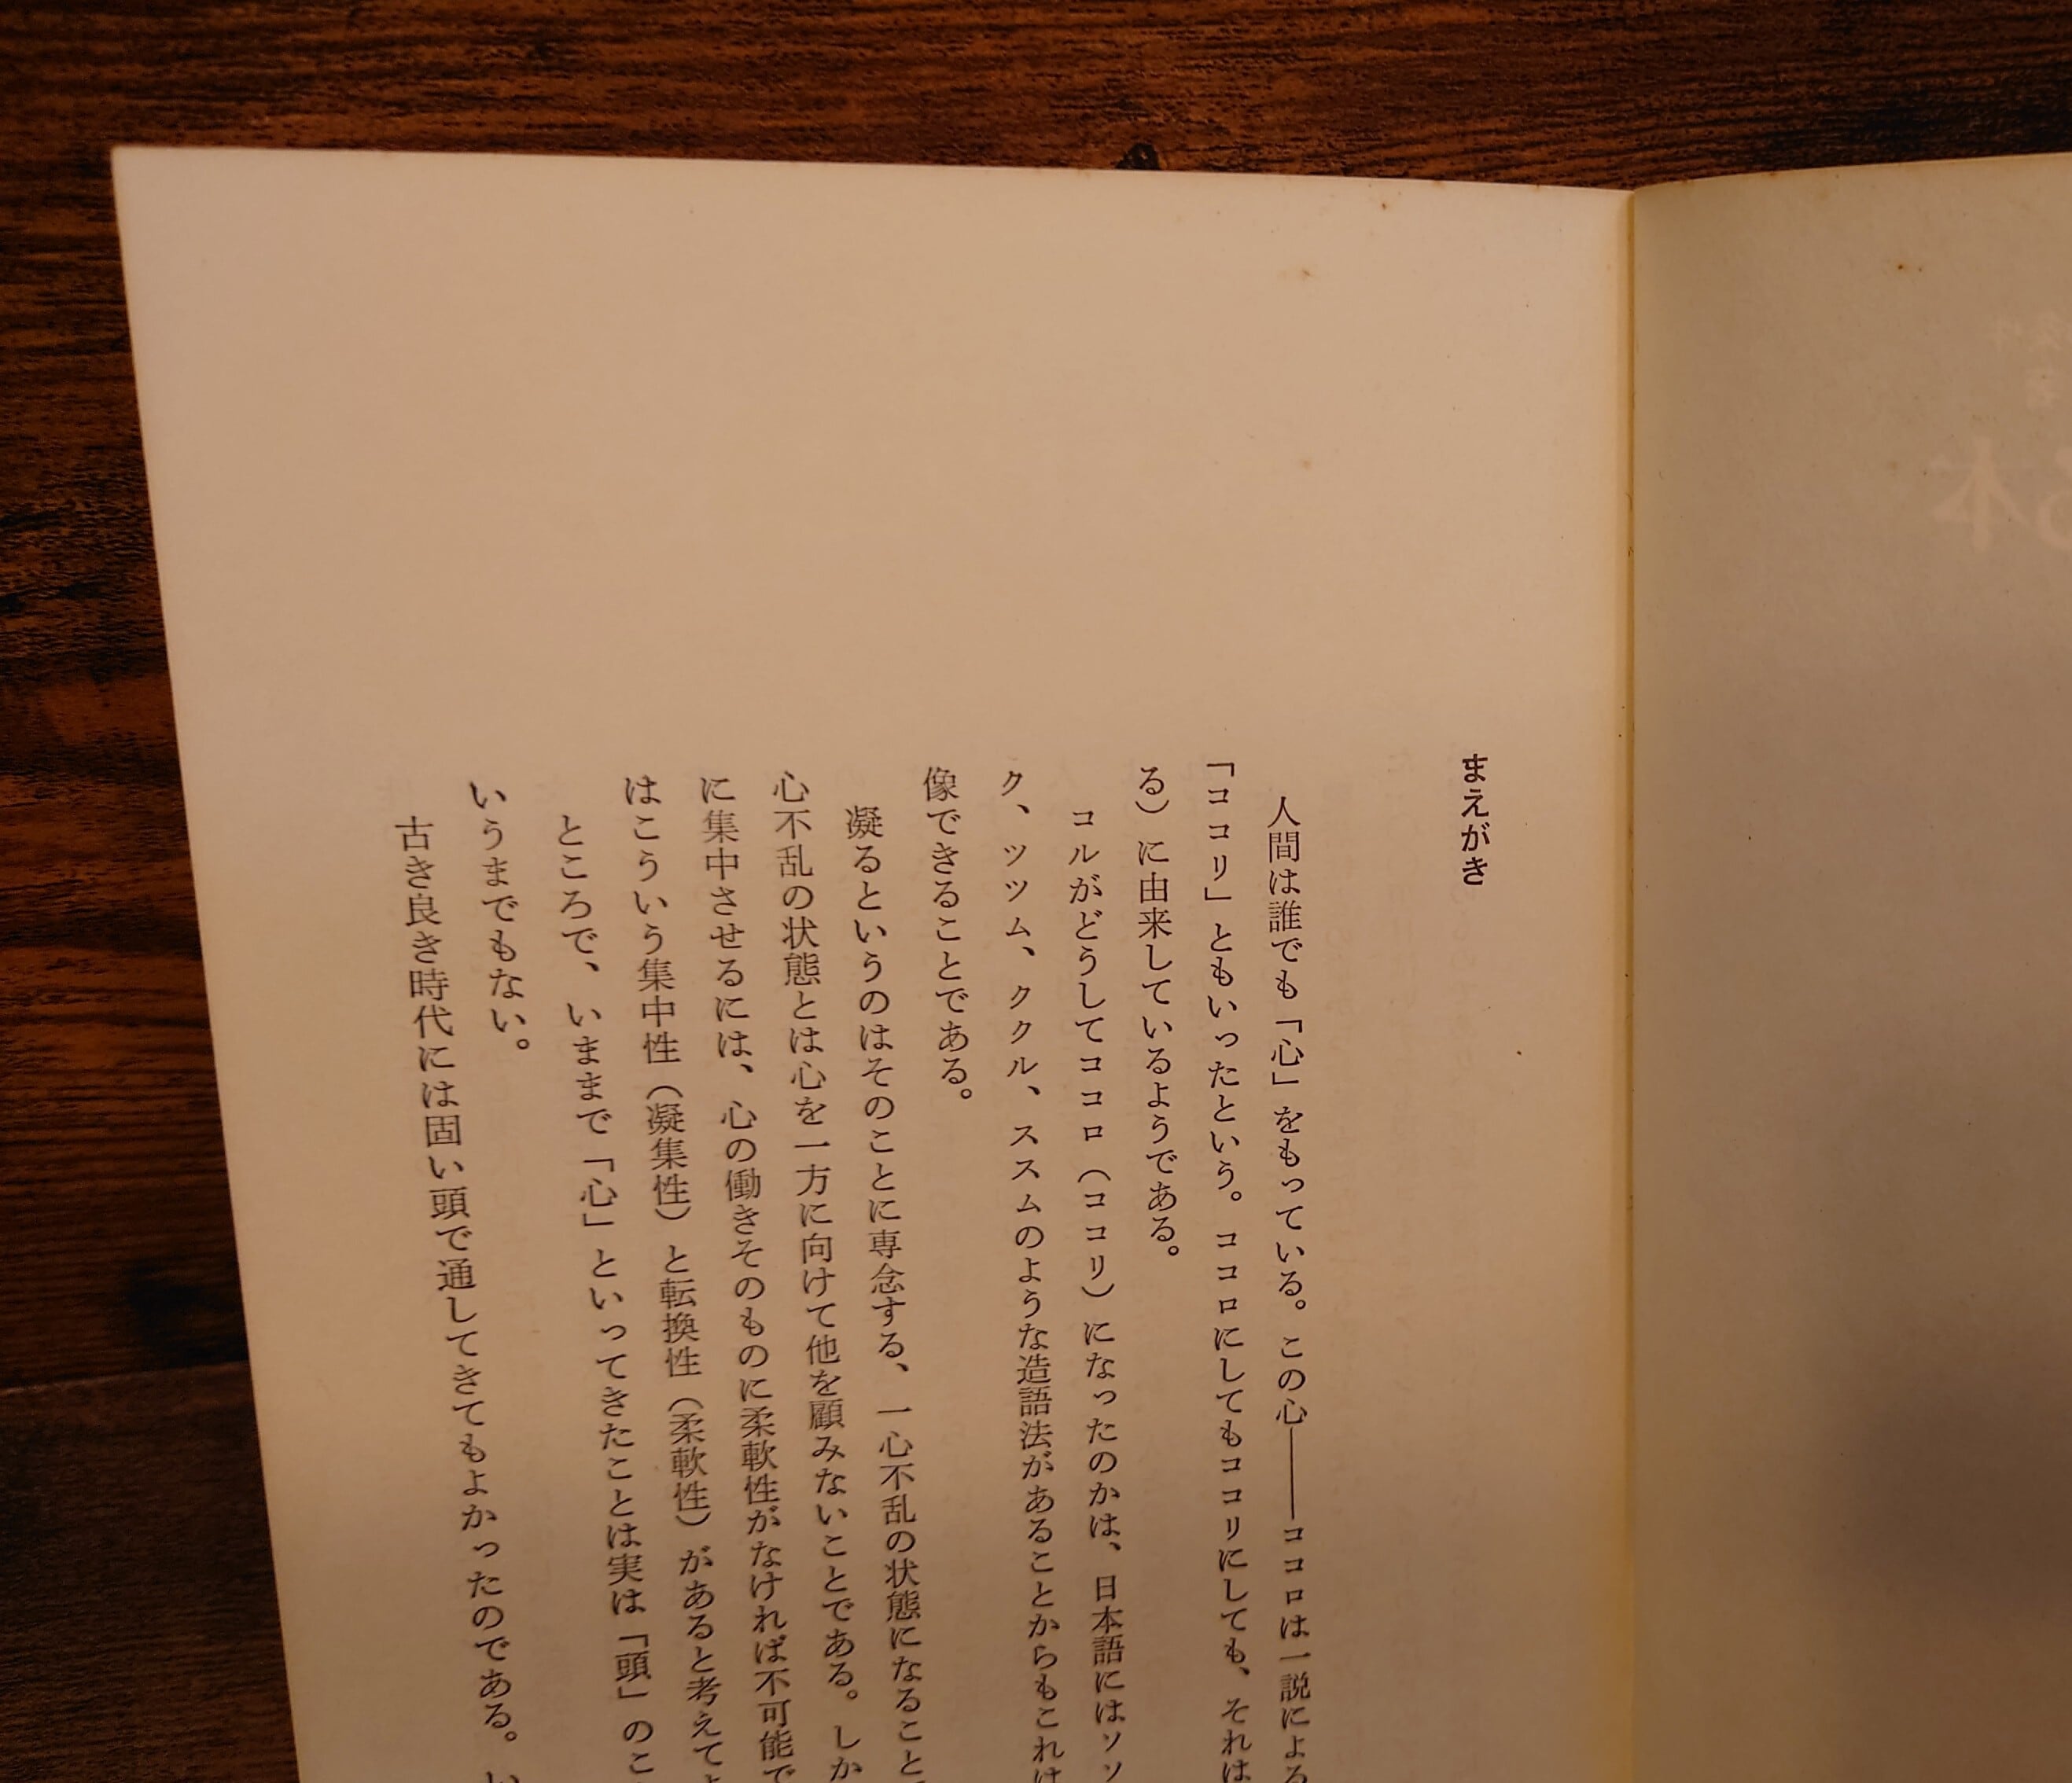 まえがき
人間は誰でも「心」をもっている。この心――ココロは一説による
「ココリ」ともいったという。ココロにしてもココリにしても、それは
る）に由来しているようである。
コルがどうしてココロ（ココリ）になったのかは、日本語にはソソ
ク、ツツム、ククル、ススムのような造語法があることからもこれは
像できることである。
凝るというのはそのことに専念する、一心不乱の状態になること
心不乱の状態とは心を一方に向けて他を顧みないことである。しか
に集中させるには、心の働きそのものに柔軟性がなければ不可能で
はこういう集中性（凝集性）と転換性（柔軟性）があると考えてよ
ところで、いままで「心」といってきたことは実は「頭」のこ
いうまでもない。
古き良き時代には固い頭で通してきてもよかったのである。い
本